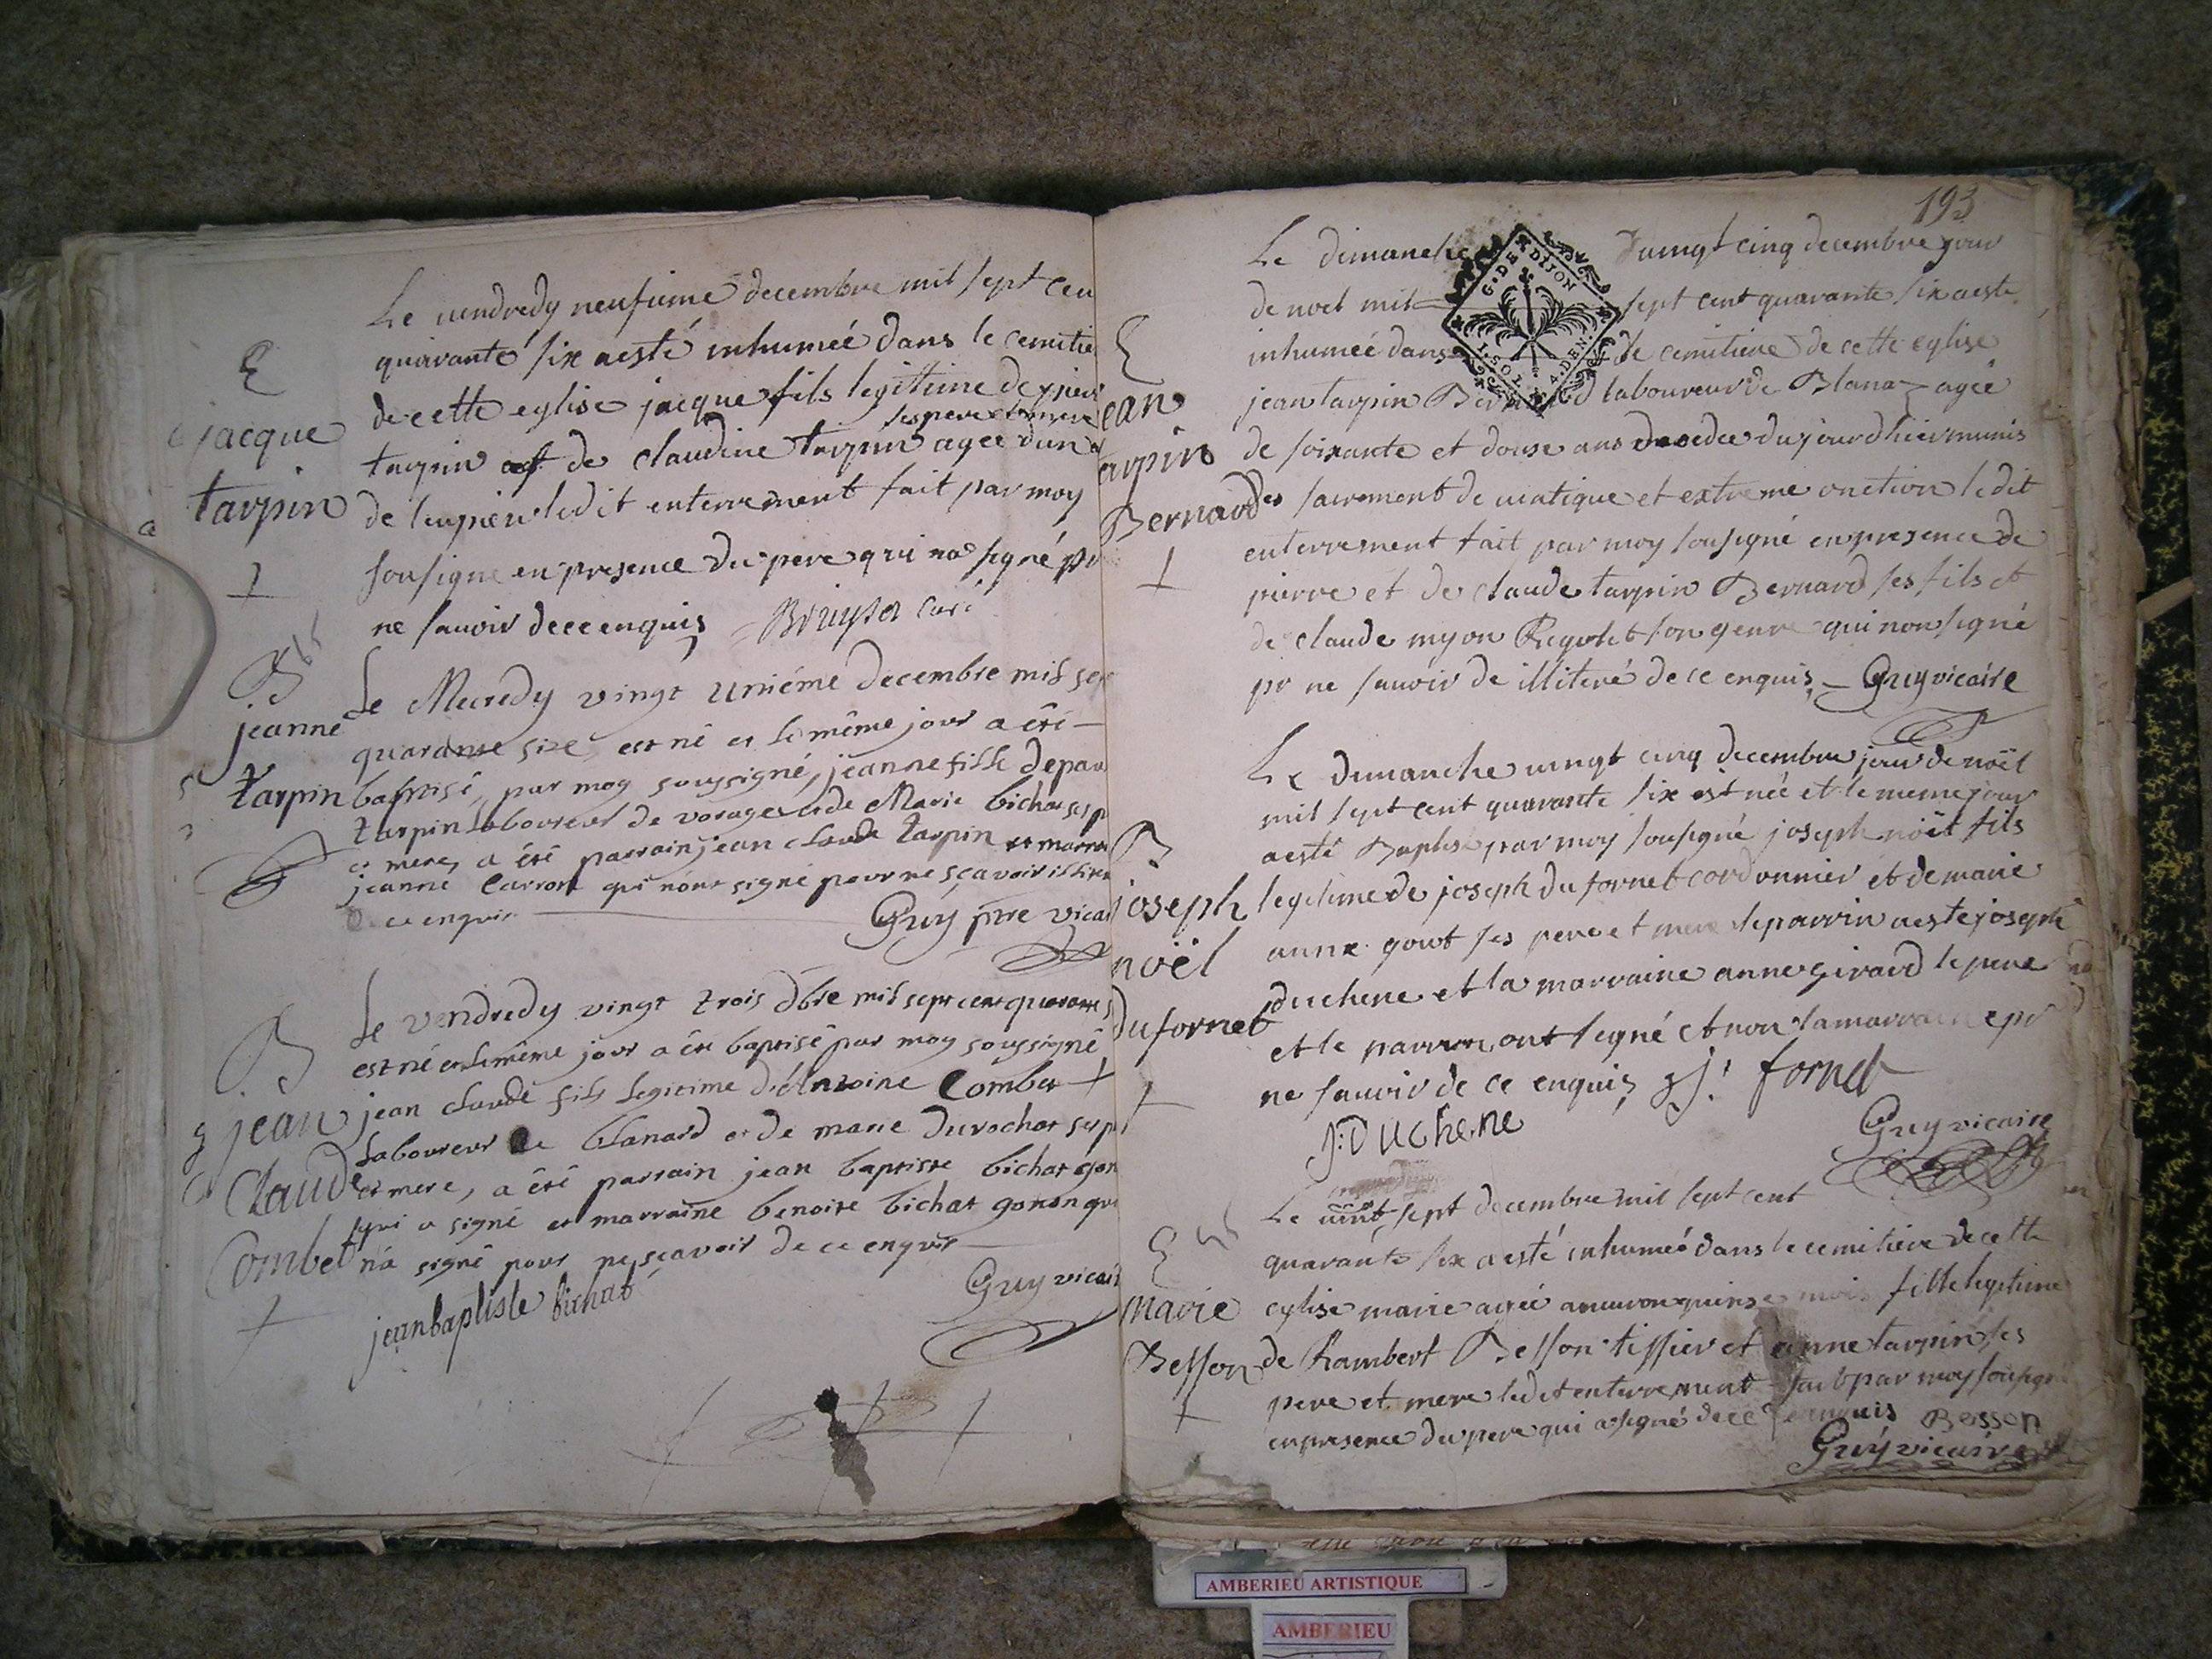 Le vendredy neufieme decembre mil sept cen
quarante six a esté inhumeé dans le cemitie
E
de cette eglise jacque fils legitime de pier
ses pere et mere
jacque
tarpin et de claudine tarpin agee dun
tarpin
de ledit enterrement fait par moy
sousigne en presence du pere qui na signé pr
ne sauoir de ce enquis curé
B
Le Mecredy vingt unième decembre mil sep
jeanne
quarante size est né et le même jour a été
tarpin
baptisé, par moy soussigné, jeanne fille de
tarpin laboureur de vorage et de Marie bichat ses p
et mere, a été parrain jean claude tarpin et marra
jeanne Carron qui n'ont signé pour ne sçavoir
de ce enquis
Guy ptre vicai
Le vendredy vingt trois dbre mil sept cent quarante s
B
est né et le même jour a été baptisé par moy soussigné
jean
jean claude fils legitime d'Antoine Combet
laboureur de blanard et de marie durochat ses p
Claude
et mere, a été parrain jean baptiste bichat gon
qui a signé et marraine benoite bichat gonon qui
Combet
n'a signé pour ne sçavoir de ce enquis
Guy vicair
jean baptiste bichat
193
Le dimanche vuingt cinq decembre jour
G. DE DIJON
1. SOL 4. DEN.
de noel mil sept cent quarante six a este
E
inhumeé dans le cemitiere de cette eglise
ean
jean tarpin Bernard laboureur de Blanaz ageé
arpin
de soixante et douse ans decedee du jourdhier munis
Bernard
des sacrement de uiatique et extreme onction ledit
enterrement fait par moy sousigné en presence de
pierre et de claude tarpin Bernard ses fils et
de claude myon son genre qui non signé
pr ne sauoir de illiteré de ce enquis Guy vicaire
Le dimanche uingt cinq decembre jour de noël
mil sept cent quarante six est neé et le meme jour
B
a esté Baptisé par moy sousigné joseph noël fils
joseph
legitime de joseph du fornet cordonnier et de marie
noël
anne gout ses pere et mere le parrin a este joseph
du fornet
duchene et la marraine anne girard le pere
et le parrin ont signé et non la marraine pr
ne sauoir de ce enquis j. fornet
J: Duchene
Guy vicaire
Le uint sept decembre mil sept cent
E
quarante six a esté inhumeé dans le cemitiere de cette
Marie
eglise marie ageé anuiron quinse mois fille legitime
Besson
de Rambert Besson tissier et anne tarpin ses
pere et mere ledit enterrement fait par moy sousigné
en presence du pere qui a signé de ce enquis Besson
Guy vicaire
AMBERIEU ARTISTIQUE
AMBERIEU